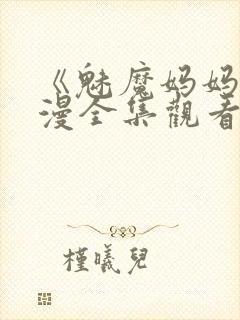 《魅魔妈妈
漫全集觀看
槿曦兒